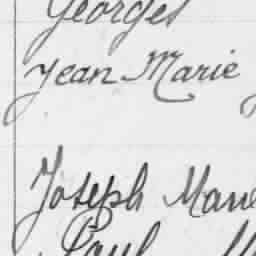 Georges
Jean Marie
Joseph Marie
Paul